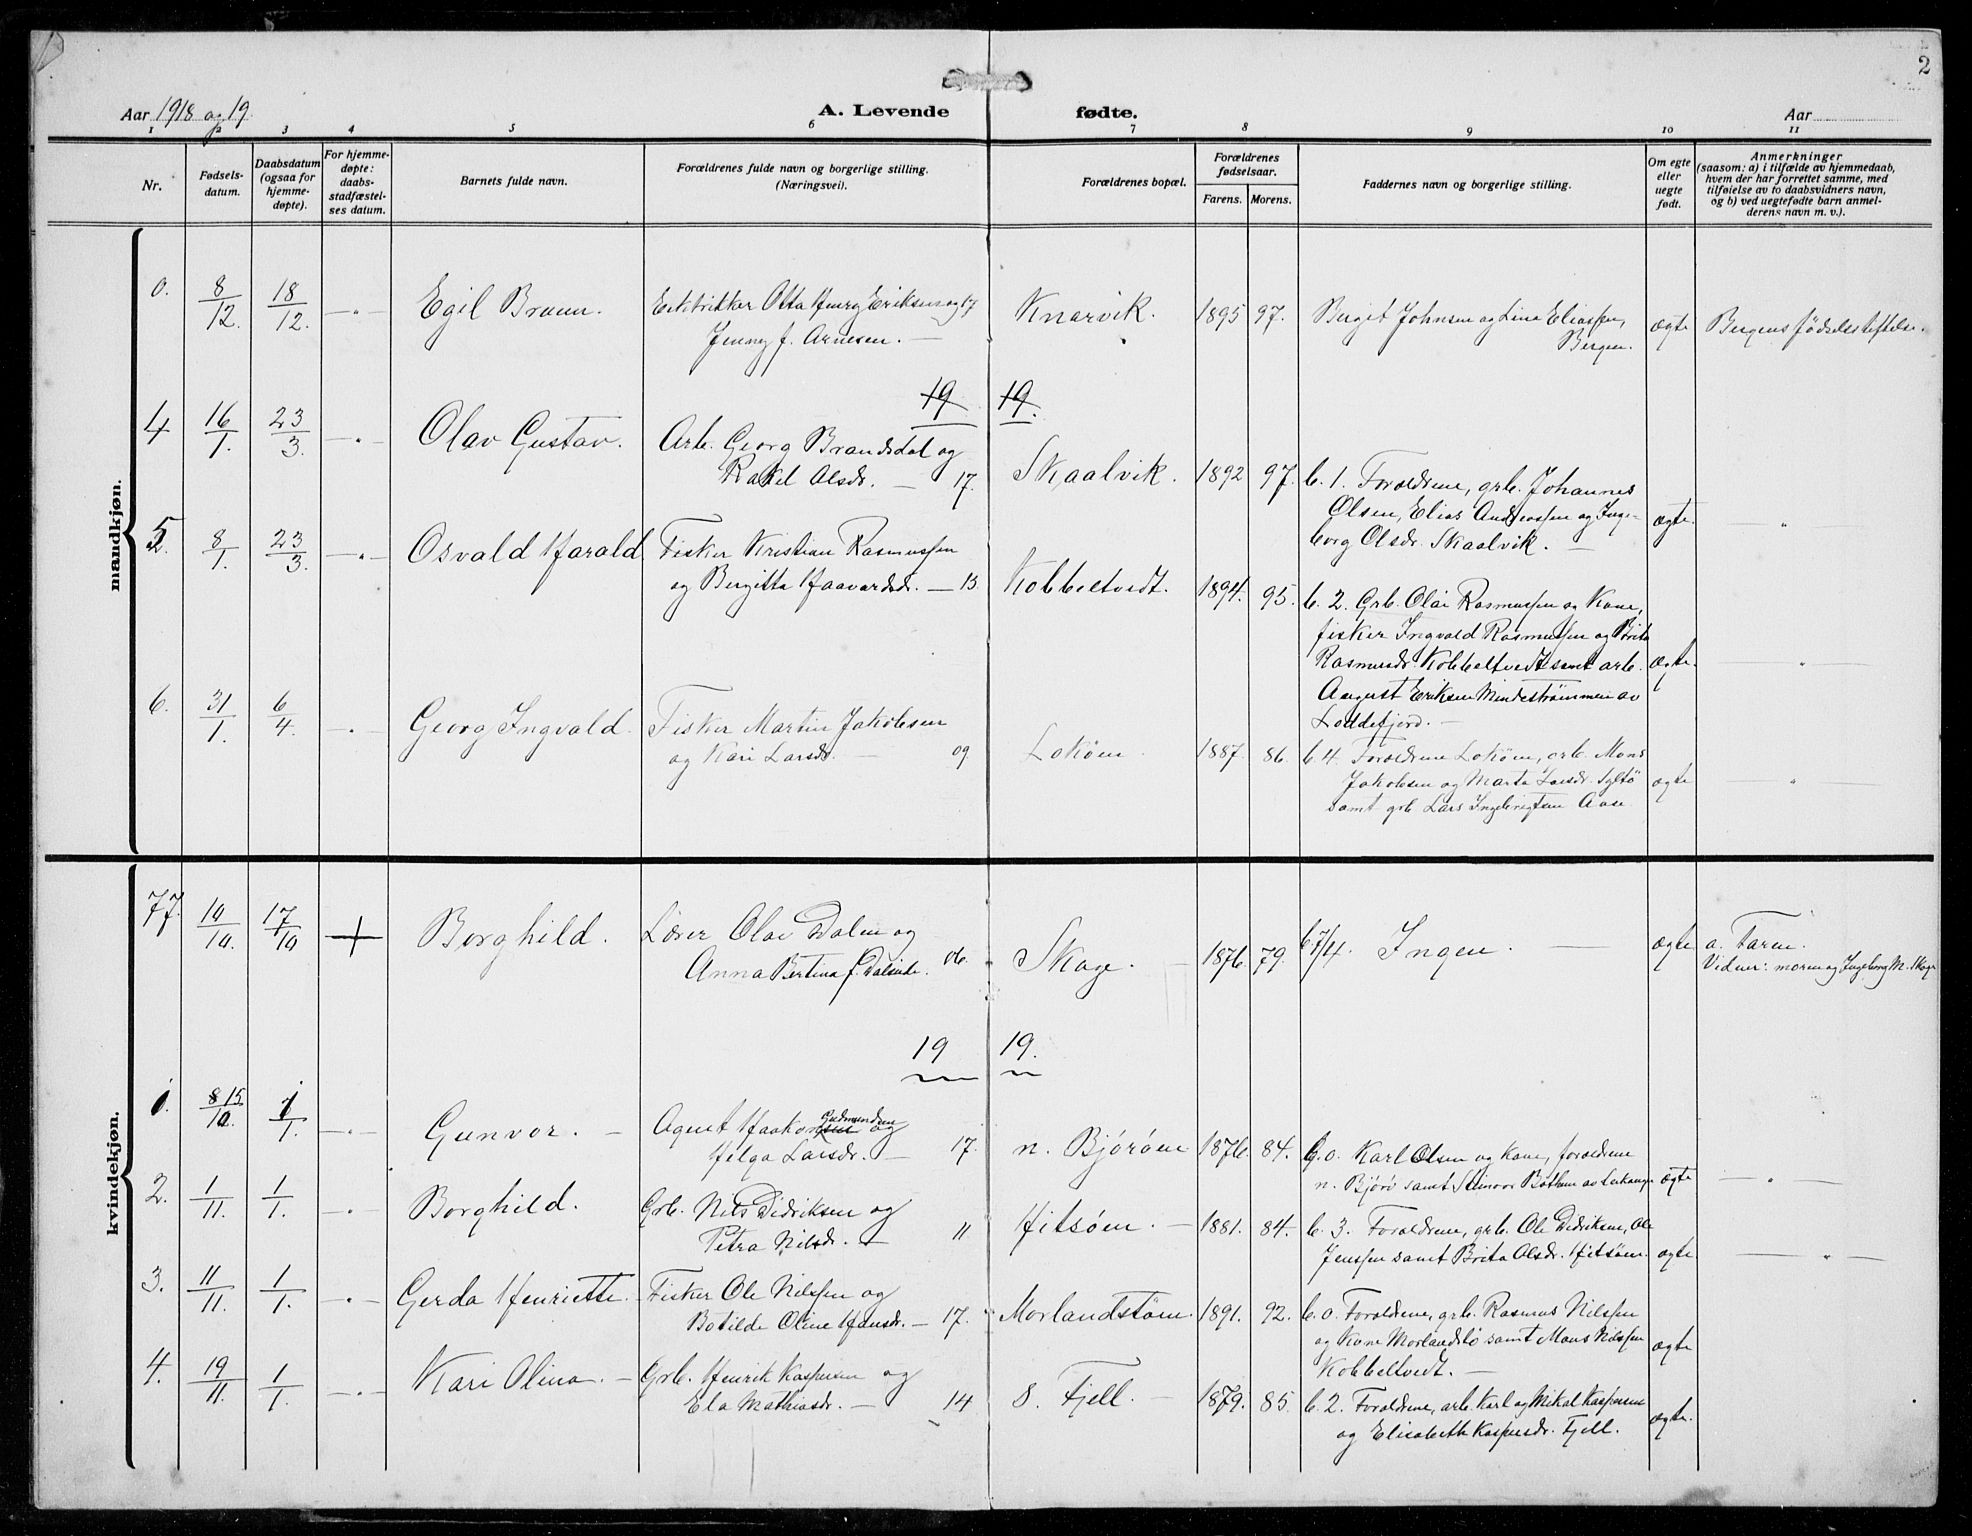 2
Aar 1918 og 19.
A. Levende fødte.
Aar
1 2 3 4 5 6 7 8 9 10 11
Nr.
Fødsels-
datum.
Daabsdatum
(ogsaa for
hjemme-
døpte).
For hjemme-
døpte:
daabs-
stadfæstel-
ses datum.
Barnets fulde navn.
Forældrenes fulde navn og borgerlige stilling.
(Næringsvei).
Forældrenes bopæl.
Forældrenes
fødselsaar.
Farens. Morens.
Faddernes navn og borgerlige stilling.
Om egte
eller
uegte
født.
Anmerkninger
(saasom: a) i tilfælde av hjemmedaab,
hvem der har forrettet samme, med
tilføielse av to daabsvidners navn,
og b) ved uegtefødte barn anmel-
derens navn m. v.).
mandkjøn.
0. 8/12 18/12. Egil Bruun. Elektrikker Otto Henry Eriksen og 17 Knarvik. 1895 97. Birgit Johnsen og Lina Eliassen, ægte Bergens fødselsstiftelse.
Jenny f. Arnesen. Bergen.
19 19.
4 16/1. 23/3. Olav Gustav. Arb. Georg Brandsdal og Skaalvik. 1892 97. b. 1. Foræeldrene, grb. Johannes
Rakel Olsdr. — 17. Olsen, Elias Andreassen og Inge- ægte.
borg Olsdr. Skaalvik.
5. 8/1. 23/3. Osvald Harald Fisker Kristian Rasmussen Kobbeltvedt. 1894. 95. b. 2. Grb. Olai Rasmussen og Kone,
og Birgitta Haavardsdr. — 13 fisker Ingvald Rasmussen og Brita
Rasmusdr. Kobbeltvedt samt arb. ægte.
August Eriksen Mindestrømmen av
Loddefjord.
6. 31/1. 6/4. Georg Ingvald. Fisker Martin Jakobsen Lokøen 1887. 86. b. 4. Forældrene Lokøen, arb. Mons
og Kari Larsdr. — 09. Jakobsen og Marta Larsdr. Syltø ægte
samt grb Lars Ingebrigtsen Aase
kvindekjøn.
77. 10/10. 17/10 + Borghild. Lærer Olav Dalen og Skoge. 1876. 79. b 7/4. Ingen. ægte a. Faren.
Anna Bertina f. Dalseide. 06. Vidner: moren og Ingeborg M. Skoge
19 19.
1. 8 15/10. 1/1. Gunvor. Agent Haakon Gudmundsen og n. Bjørøen 1876. 84. b. 0. Karl Olsen og Kone, forældrene
Helga Larsdr. — 17. n. Bjørø samt ægte
2. 1/11. 1/1. Borghild. Grb. Nils Didriksen og Hitsøen. 1881. 84. b. 3. Forældrene, grb. Ole Didriksen, Ole
Petra Nilsdr. — 11 Jenssen samt Brita Olsdr. Hitsøen. ægte
3. 11/11. 1/1. Gerda Henriette. Fisker Ole Nilssen og Morlandstøen. 1891. 92. b. 0. Forældrene, grb. Rasmus Nilssen
Botilde Oline Hansdr. — 17. og Kone Morlandstø samt Mons Nilssen ægte
Kobbeltvedt.
4. 19/11. 1/1. Kari Olina. Grb. Henrik Kaspersen og s. Fjell. 1879. 85. b. 2. Forældrene, arb. Karl og Mikal Kaspersen
Ela Mathiasdr. — 14 og Elisabeth Kaspersdr. Fjell. ægte.